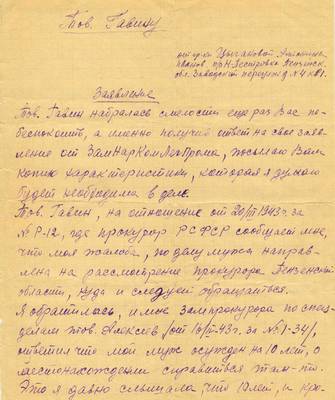 Тов. Гавину
от гр-ки Цыгановой Антонины
Ивановн. пр. Н. Пестровка Пензенск.
обл. Заводской переулок д N 4 кв 1.
Заявление
Тов. Гавин набралась смелости еще раз Вас по-
беспокоить, а именно получив ответ на свое зая-
вление от ЗамНарКомЛегПрома, посылаю Вам
копию характеристики, которая я думаю
будет необходима в деле.
Тов. Гавин, на отношение от 1943 г. за
№ Р-12, где прокурор РСФСР сообщает мне,
что моя жалоба, по делу мужа направ-
лена на рассмотрение прокурора Пензенской
области, куда и следует обращаться.
Я обратилась, и мне Зампрокурора по спец-
делам тов. Алексеев /от 43 г. за №
ответил что мой муж осужден на 10 лет, о
местонахождении справиться там-то.
Это я давно слышала, что 10 лет, и кро-